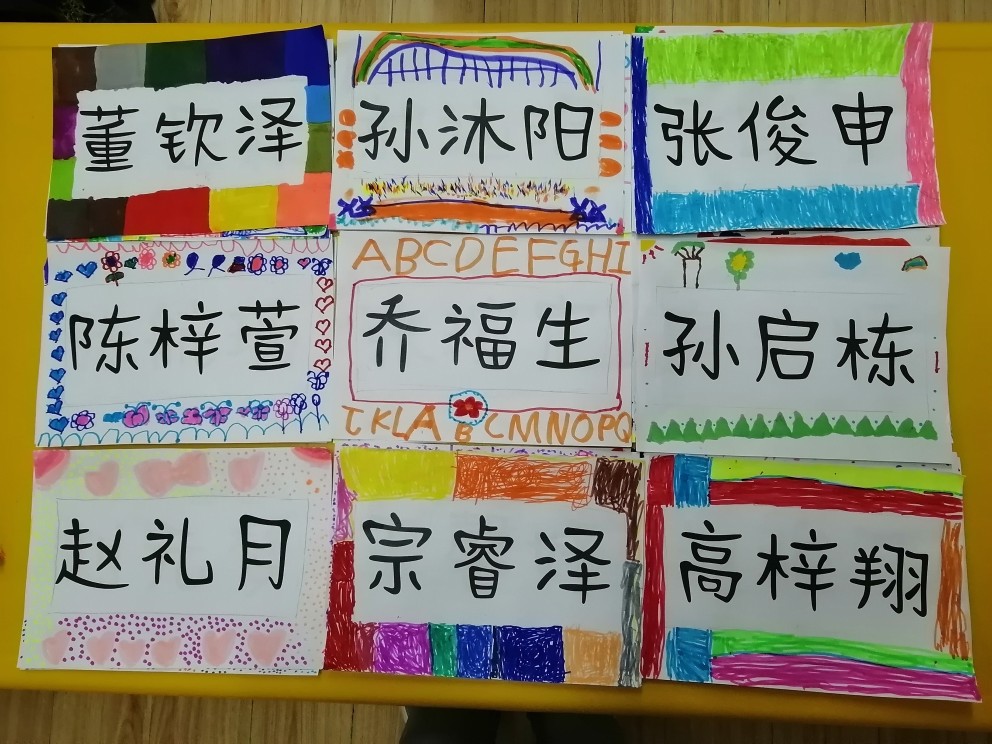 董钦泽
孙沐阳
张俊申
陈梓萱
ABCDEFGHI
乔福生
JKLA B CMNOPQ
孙启栋
赵礼月
宗睿泽
高梓翔